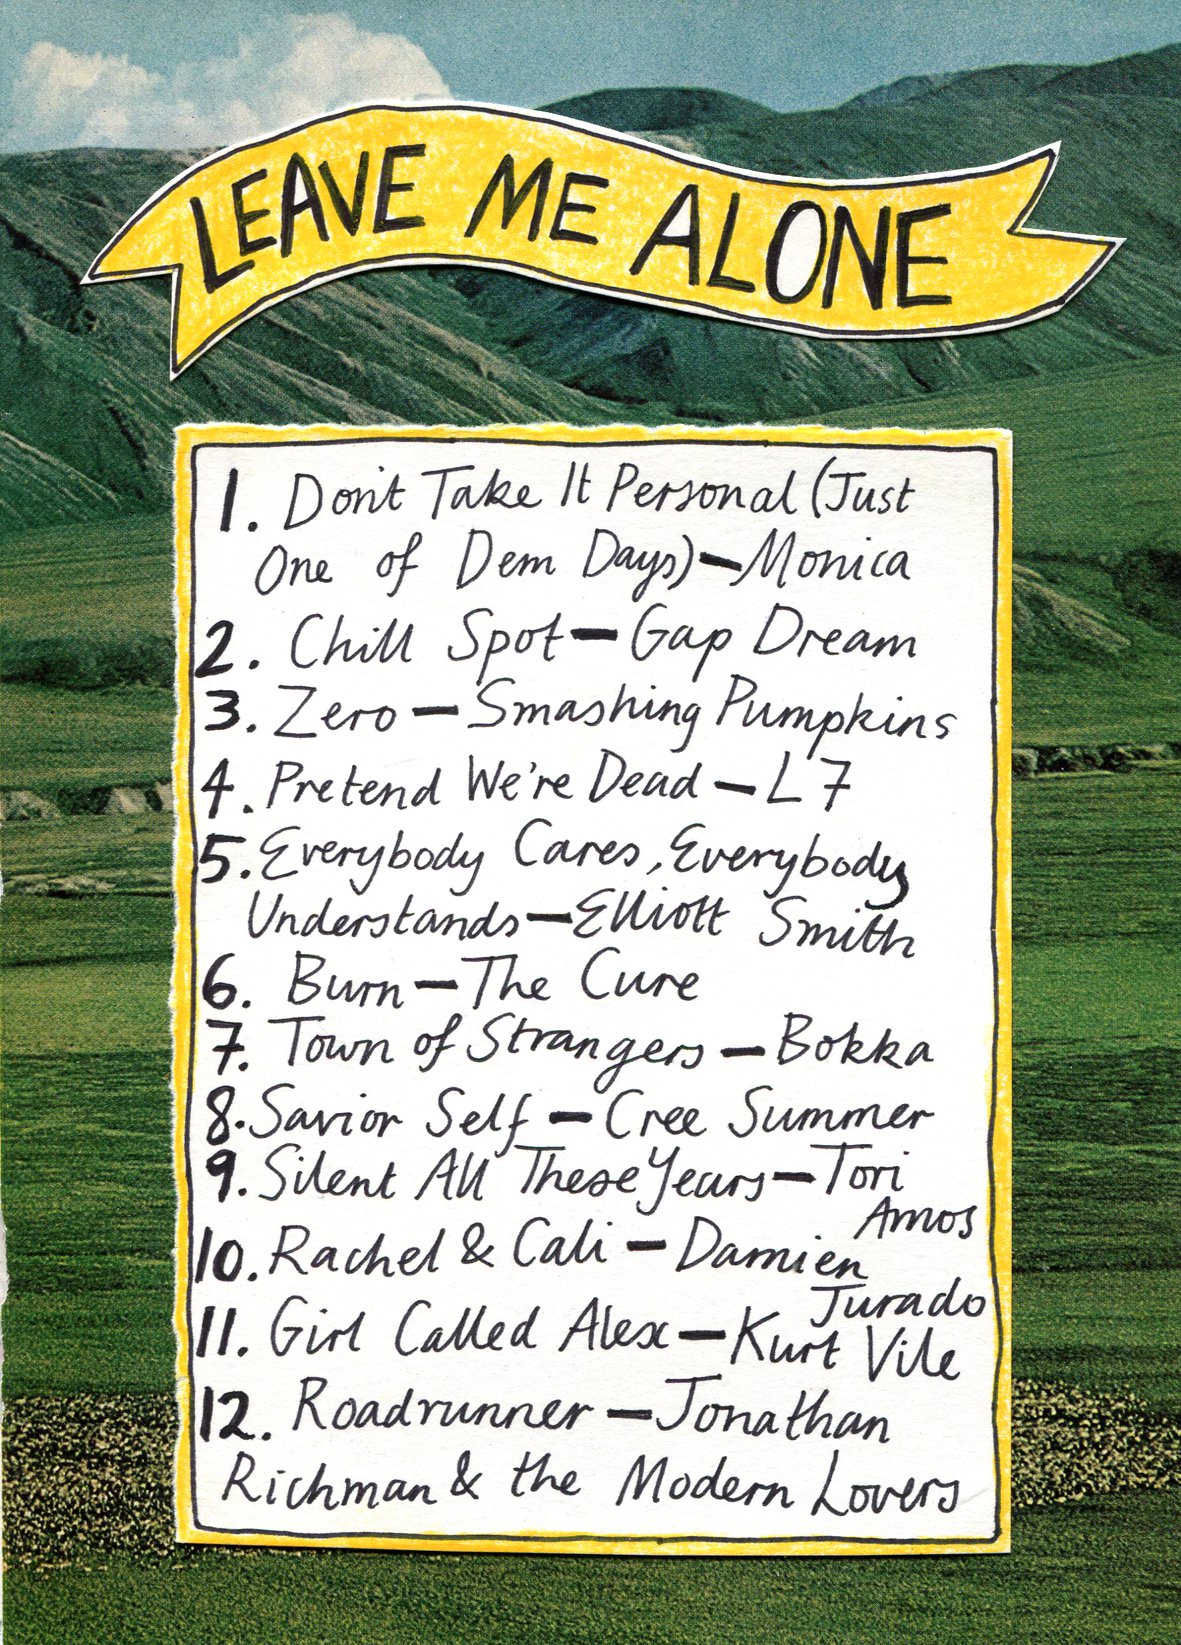 LEAVE ME ALONE
1. Don't Take It Personal (Just
One of Dem Days) – Monica
2. Chill Spot – Gap Dream
3. Zero – Smashing Pumpkins
4. Pretend We're Dead – L7
5. Everybody Cares, Everybody
Understands – Elliott Smith
6. Burn – The Cure
7. Town of Strangers – Bokka
8. Savior Self – Cree Summer
9. Silent All These Years – Tori
Amos
10. Rachel & Cali – Damien
Jurado
11. Girl Called Alex – Kurt Vile
12. Roadrunner – Jonathan
Richman & the Modern Lovers